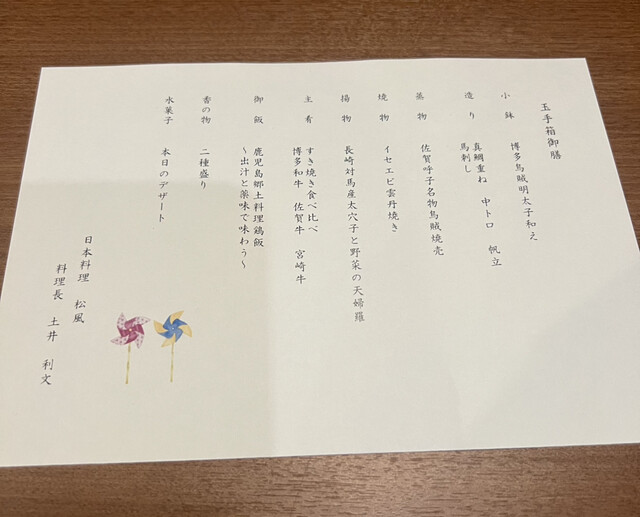 玉手箱御膳
小鉢 博多烏賊明太子和え
造り 真鯛重ね 中トロ 帆立
馬刺し
蒸物 佐賀呼子名物烏賊焼売
焼物 イセエビ雲丹焼き
揚物 長崎対馬産太穴子と野菜の天婦羅
主肴 すき焼き食べ比べ
博多和牛 佐賀牛 宮崎牛
御飯 鹿児島郷土料理鶏飯
〜出汁と薬味で味わう〜
香の物 二種盛り
水菓子 本日のデザート
日本料理 松風
料理長 土井 利文